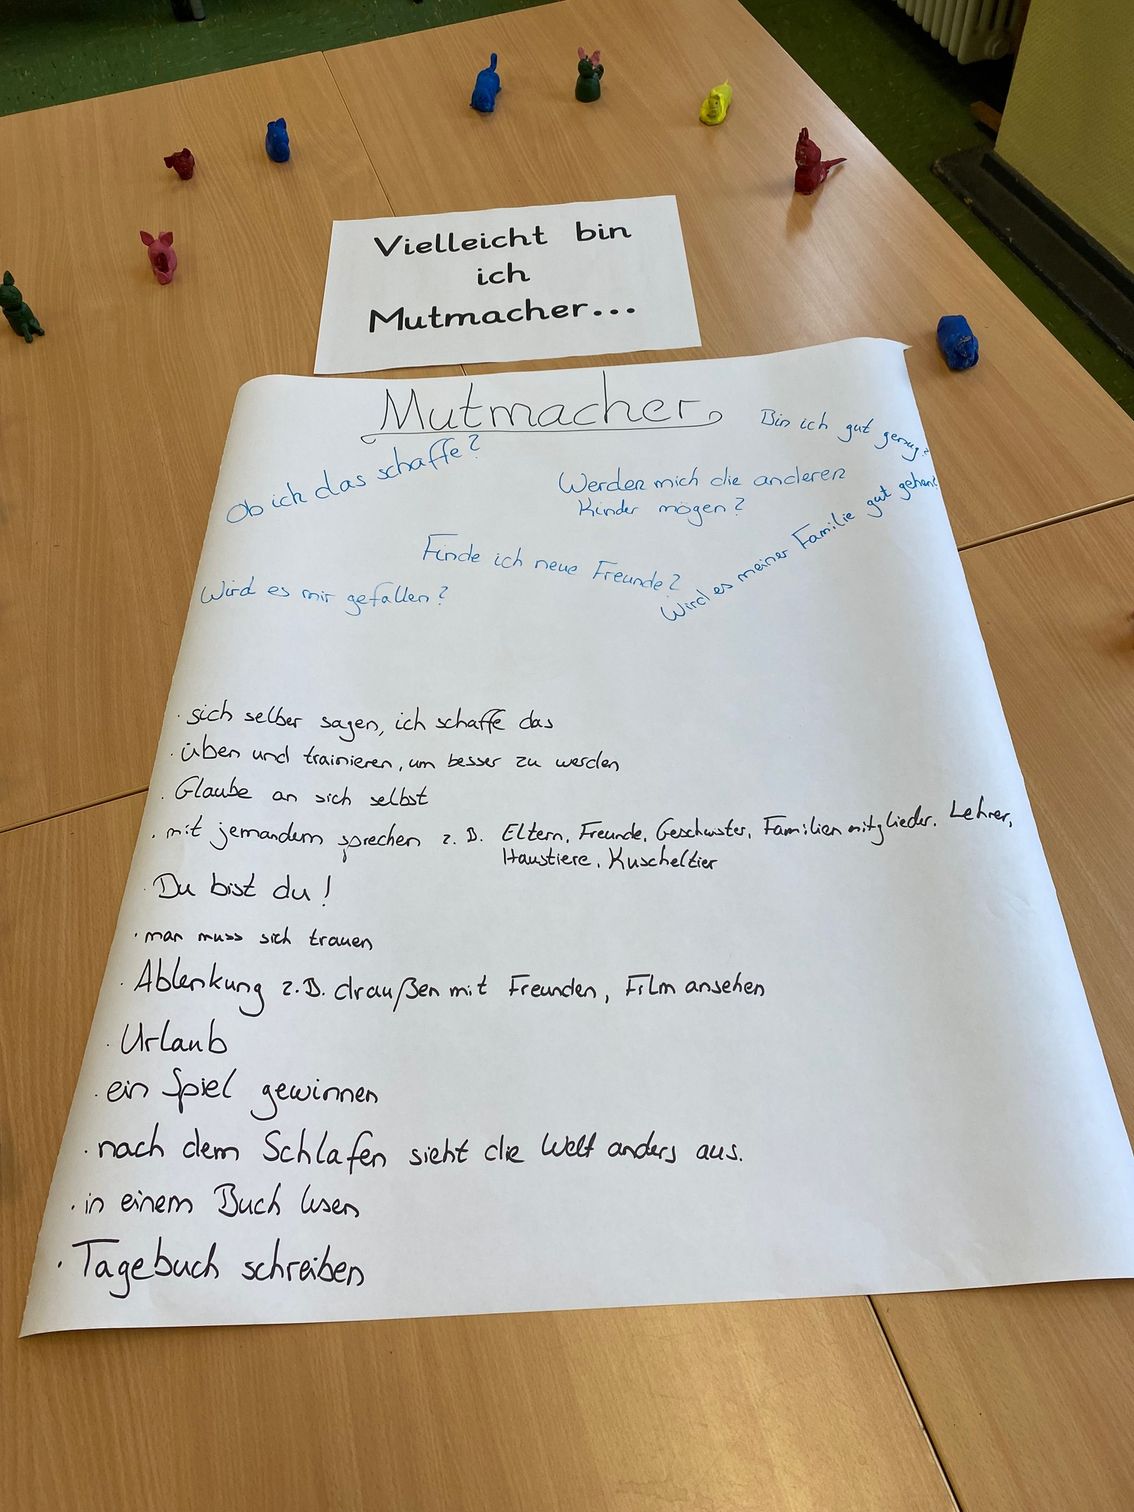 Vielleicht bin
ich
Mutmacher...
Mutmacher
Bin ich gut genug?
Ob ich das schaffe?
Werden mich die anderen
Kinder mögen?
Wird es meiner Familie gut gehen?
Finde ich neue Freunde?
Wird es mir gefallen?
· sich selber sagen, ich schaffe das
· üben und trainieren, um besser zu werden
· Glaube an sich selbst
· mit jemandem sprechen z.B. Eltern, Freunde, Geschwister, Familienmitglieder, Lehrer,
Haustiere, Kuscheltier
· Du bist du!
· man muss sich trauen
· Ablenkung z.B. draußen mit Freunden, Film ansehen
· Urlaub
· ein Spiel gewinnen
· nach dem Schlafen sieht die Welt anders aus.
· in einem Buch lesen
· Tagebuch schreiben